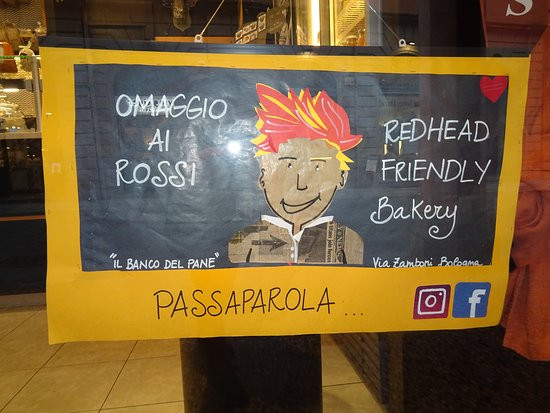 S
OMAGGIO
AI
ROSSI
REDHEAD
FRIENDLY
Bakery
"IL BANCO DEL PANE"
Via Zamboni Bologna
PASSAPAROLA...